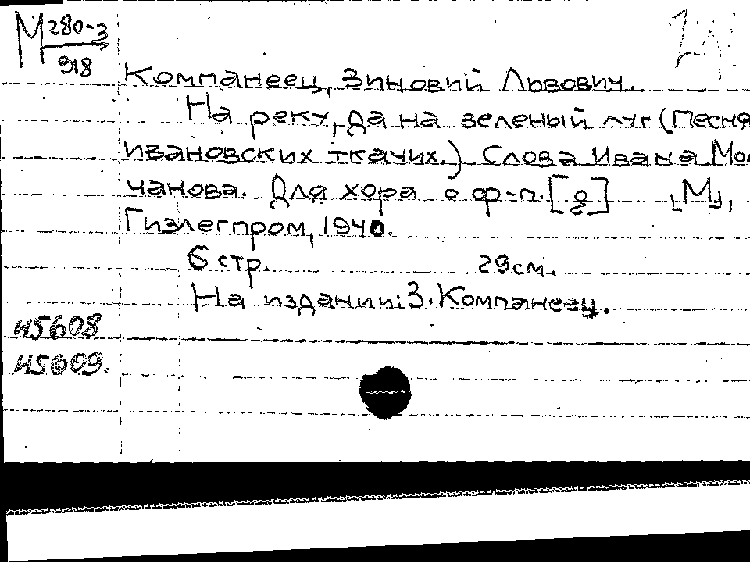 М 280-3
918
Компанеец, Зиновий Львович.
На реку, да на зеленый луг (Песня
ивановских ткачих.) Слова Ивана Мол
чанова. Для хора с ф-п. [g] [М],
Гизлегпром, 1940.
6 стр. 29см.
На издании: З. Компанеец.
45608
45609.